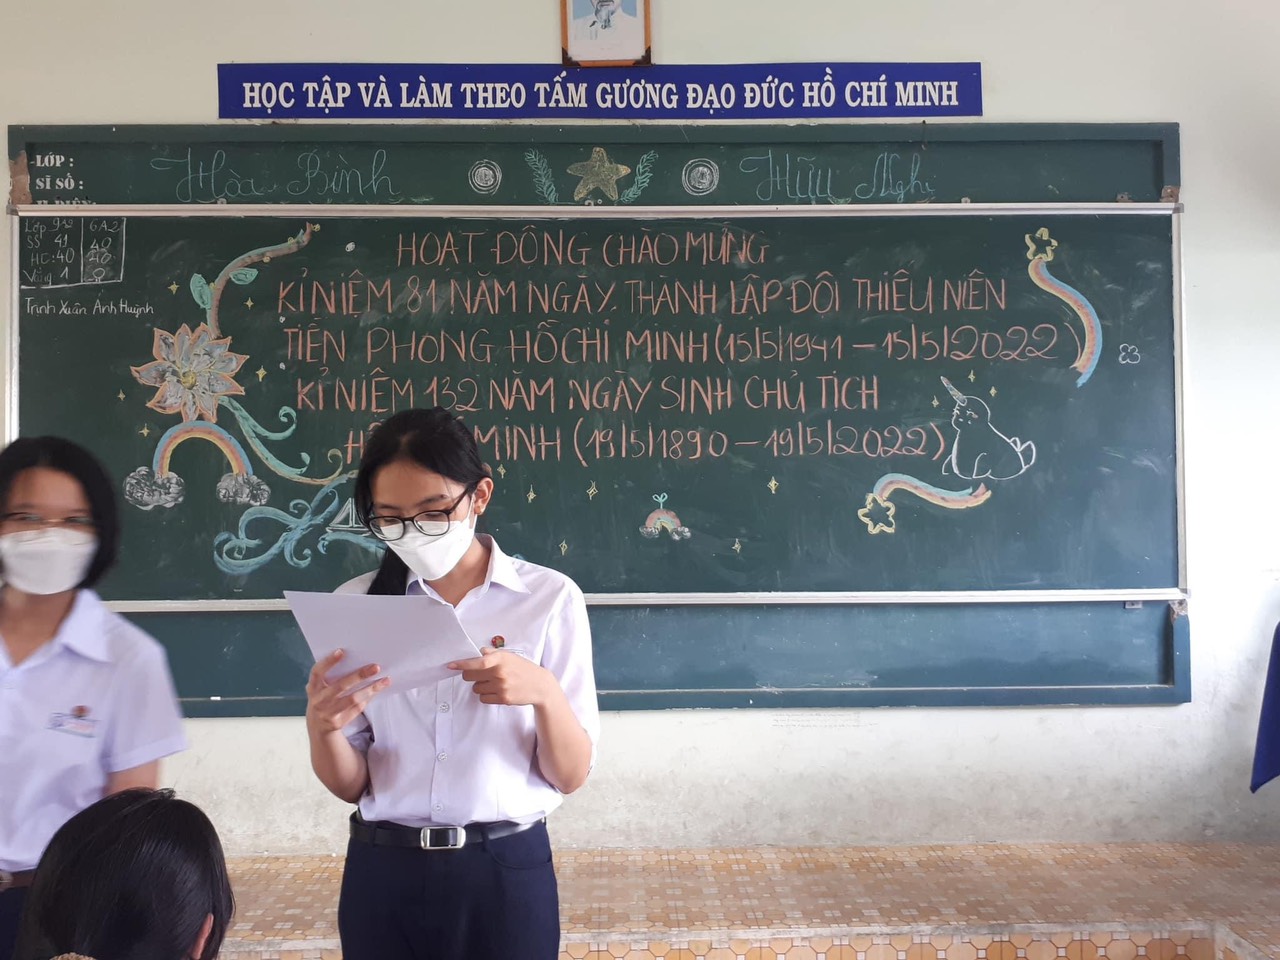 HỌC TẬP VÀ LÀM THEO TẤM GƯƠNG ĐẠO ĐỨC HỒ CHÍ MINH
-LỚP :
SĨ SỐ :
Hòa Bình
Hữu Nghị
Lớp 9A2 6A2
SS 41 40
HD: 40 40
Vắng 1 0
Trịnh Xuân Anh Huỳnh
HOẠT ĐỘNG CHÀO MỪNG
KỈ NIỆM 81 NĂM NGÀY THÀNH LẬP ĐỘI THIẾU NIÊN
TIỀN PHONG HỒ CHÍ MINH (15/5/1941 – 15/5/2022)
KỈ NIỆM 132 NĂM NGÀY SINH CHỦ TỊCH
MINH (19/5/1890 – 19/5/2022)